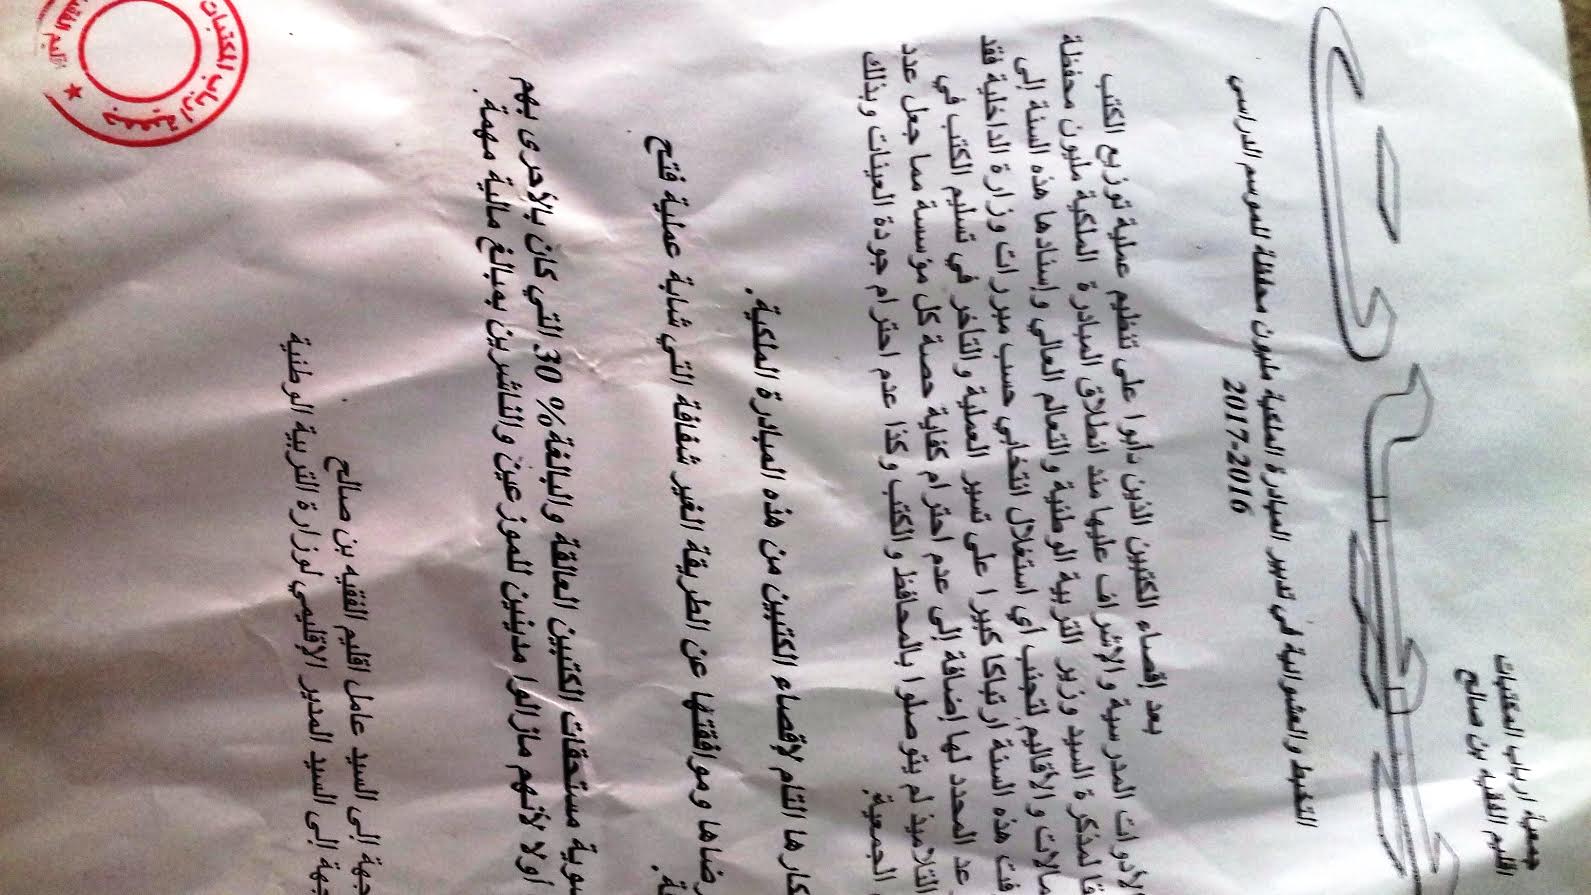 جمعية ارباب المكتبات
اقليم الفقيه بن صالح
التخبط والعشوائية في تدبير المبادرة الملكية مليون محفظة للموسم الدراسي
2017-2016
بعد إقصاء الكتبيين الذين دأبوا على تنظيم عملية توزيع الكتب
لأدوات المدرسية والإشراف عليها منذ انطلاق المبادرة الملكية مليون محفظة
قا لمذكرة السيد وزير التربية الوطنية والتعالم العالي وإسنادها هذه السنة إلى
مالات والأقاليم لتجنب أي استغلال انتخابي حسب مبررات وزارة الداخلية فقد
فت هذه السنة ارتباكا كبيرا على تسير العملية والتاخر في تسليم الكتب في
عد المحدد لها إضافة إلى عدم احترام كفاية حصة كل مؤسسة مما جعل عدد
التلاميذ لم يتوصلوا بالمحافظ والكتب وكذا عدم احترام جودة العينات وبذلك
الجمعية:
كارها التام لإقصاء الكتبيين من هذه المبادرة الملكية.
رضاها وموافقتها عن الطريقة الغير شفافة التي شابة عملية فتح
ة.
سوية مستحقات الكتبيين العالقة والبالغة% 30 التي كان بالأحرى بهم
أولا لأنهم مازالوا مدينين للموزعين والناشرين بمبالغ مالية مهمة.
جهة إلى السيد عامل اقليم الفقيه بن صالح
جهة إلى السيد المدير الإقليمي لوزارة التربية الوطنية
جمعية ارباب المكتبات